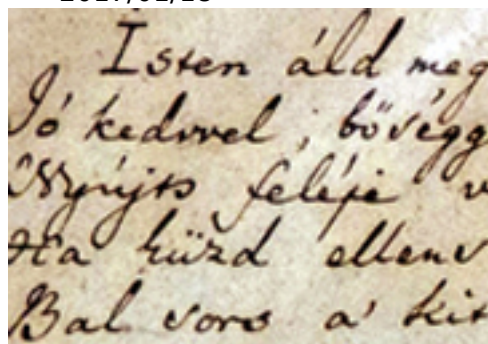 Isten áld meg
Jó kedvvel, bőségg
Nyújts feléje v
Ha küzd ellens
Bal sors a' kit